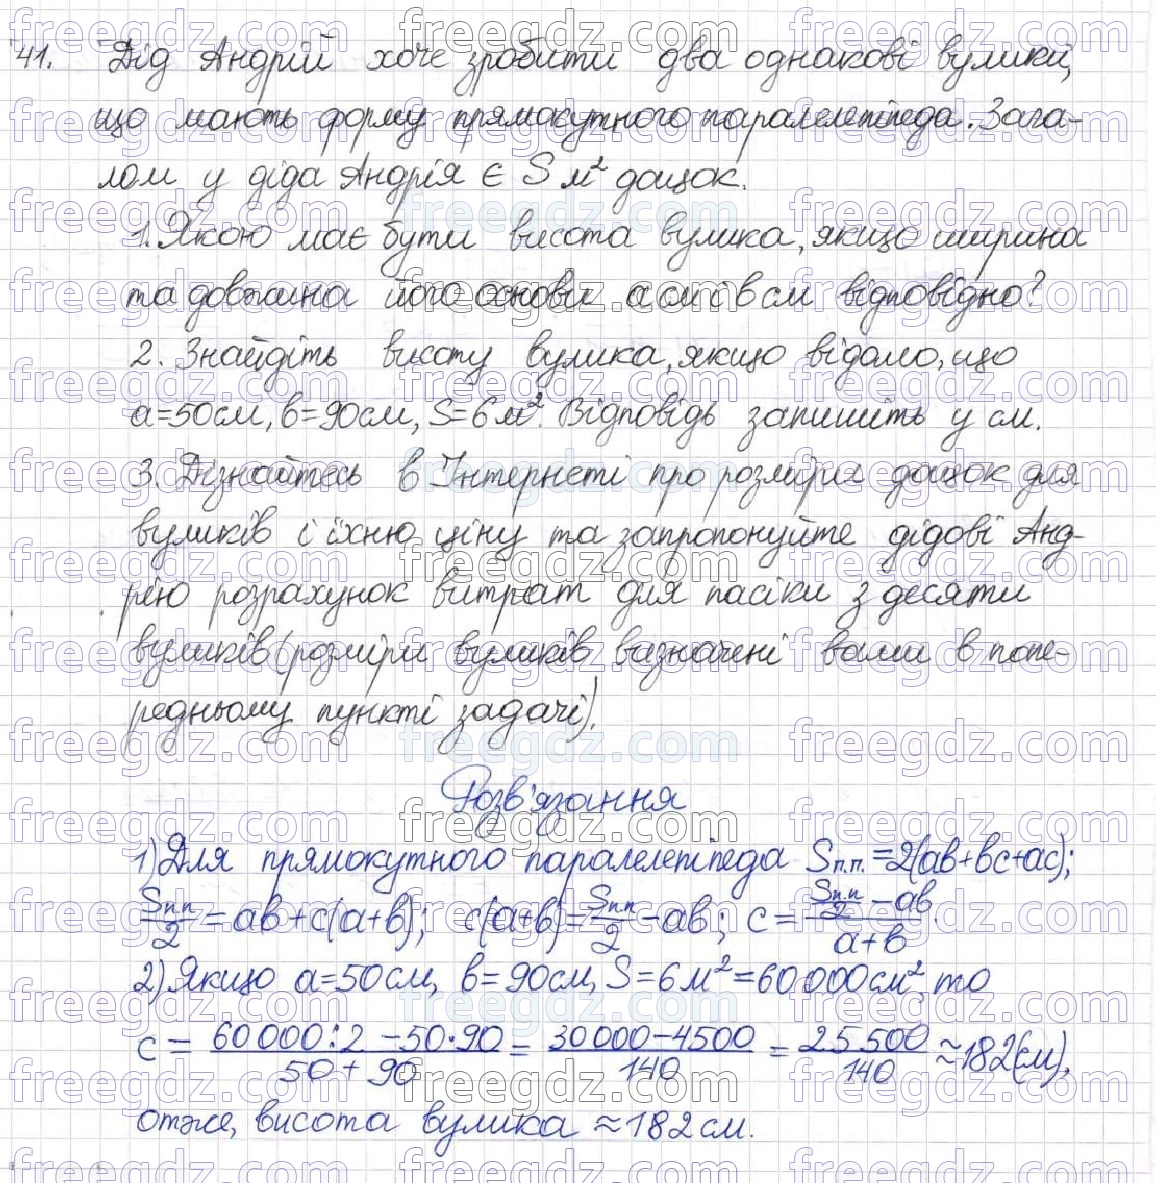 41. Дід Андрій хоче зробити два однакові вулики,
що мають форму прямокутного паралелепіпеда. Зага-
лом у діда Андрія є S м² дощок.
1. Якою має бути висота вулика, якщо ширина
та довжина його основи a см і b см відповідно?
2. Знайдіть висоту вулика, якщо відомо, що
a=50см, b=90см, S=6м². Відповідь запишіть у см.
3. Дізнайтесь в Інтернеті про розміри дощок для
вуликів і їхню ціну та запропонуйте дідові Анд-
рію розрахунок витрат для пасіки з десяти
вуликів (розміри вуликів вазначені вами в попе-
редньому пункті задачі).
Розв'язання
1) Для прямокутного паралелепіпеда Sп.п.=2(ab+bc+ac);
Sпп/2=ab+c(a+b); c(a+b)=Sпп/2-ab; c=(Sп.п/2-ab)/(a+b).
2) Якщо a=50см, b=90см, S=6м²=60000см², то
c=(60000:2-50·90)/(50+90)=(30000-4500)/140=25500/140≈182(см),
отже, висота вулика ≈182см.
freegdz.com